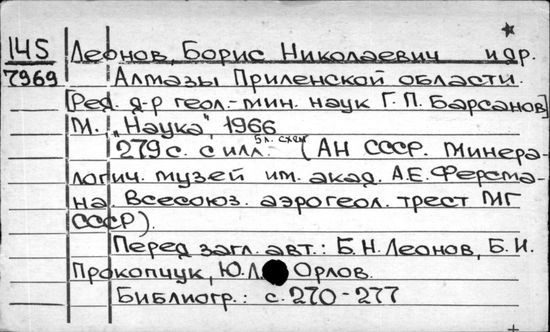 145 Леонов, Борис Николаевич и др.
7969 Алмазы Приленской области.
[Ред. д-р геол.-мин. наук Г. П. Барсанов]
М. „Наука", 1966
279 с. с илл. 5 л. схем (АН СССР. Минера-
логич. музей им. акад. А.Е. Ферсма-
на. Всесоюз. аэрогеол. трест МГ
СССР).
Перед загл. авт.: Б.Н. Леонов, Б. И.
Прокопчук, Ю.Л. Орлов.
Библиогр.: с. 270-277